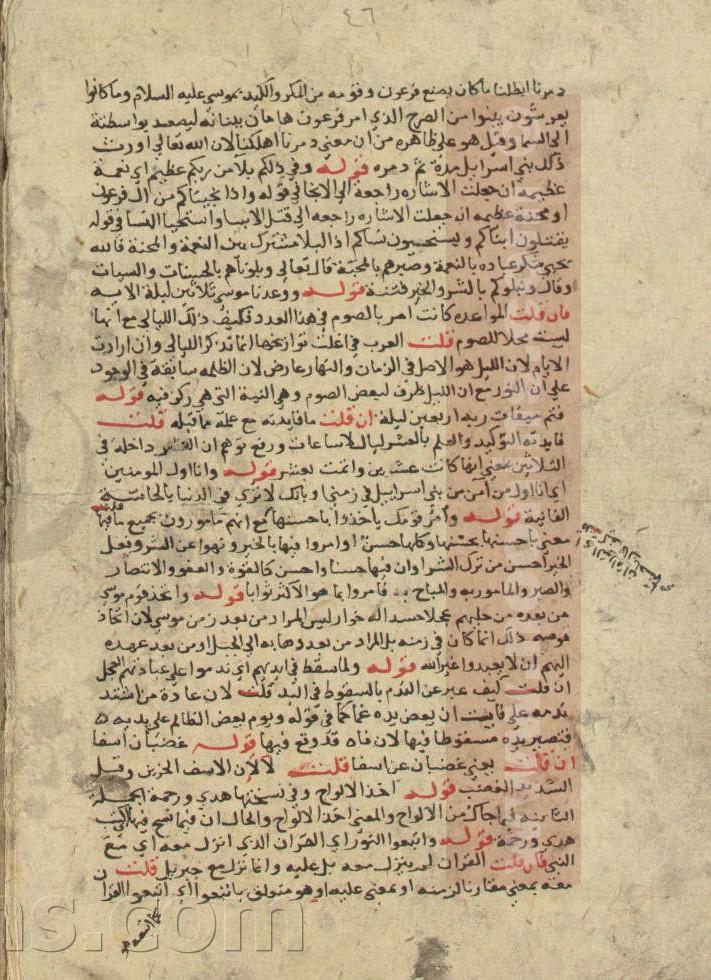 ٤٦
دمرنا ابطلنا ما كان يصنع فرعون وقومه من المكر والكيد بموسى عليه السلام وما كانوا
يعرشون يبنوا من الصرح الذي امر فرعون هامان ببنائه ليصعد بواسطته
الى السما وقيل هو على ظاهره من ان معنى دمرنا اهلكنا لان الله تعالى اورث
ذلك بني اسرائيل مدة ثم دمره قوله وفي ذلكم بلا من ربكم عظيم اي نعمة
عظيمة ان جعلت الاشاره راجعة الى الانجا في قوله واذ انجيناكم من ال فرعون
او محنة عظيمه ان جعلت الاشاره راجعه الى قتل الابنا واستحيا النسا في قوله
يقتلون ابناكم ويستحيون نساكم اذ البلا مشترك بين النعمة والمحنة فالله
يختبر شكر عباده بالنعمة وصبرهم بالمحنة قال تعالى وبلوناهم بالحسنات والسيات
وقال ونبلوكم بالشر والخير فتنة قوله ووعدنا موسى ثلاثين ليلة الايه
فان قلت المواعده كانت امر بالصوم في هذا العدد فكيف ذلك الليالي مع انها
ليست محلا للصوم قلت العرب في اغلب تواريخها انما تذكر الليالي وان ارادت
الايام لان الليل هو الاصل في الزمان والنهار عارض لان الظلمه سابقة في الوجود
على ان النور مع ان الليل ظرف لبعض الصوم وهي النية التي هي ركن فيه قوله
فتم ميقات ربه اربعين ليلة ان قلت ما فايدته مع علمه مما قبله قلت
فايدته التوكيد والعلم بالعشر ليال لا ساعات ورفع توهم ان العشر داخله في
الثلاثين بمعنى انها كانت عشرين واتمت بعشر قوله وانا اول المومنين
اي انا اول من امن من بني اسرائيل في زمني او بانك لا ترى في الدنيا بالحاسة
الفانية قوله وامر قومك ياخذوا باحسنها مع انهم مامورون بجميع ما فيها قلت
معنى باحسنها بحسنها وكلها حسن او امروا فيها بالخير ونهوا عن الشر وفعل
الخير احسن من ترك الشر او ان فيها حسنا واحسن كالقوة والعفو والانتصار
والصبر والمامور به والمباح فامروا بما هو الاكثر ثوابا قوله واتخذ قوم موسى
من بعده من حليهم عجلا جسدا له خوار ليس المراد من بعد زمن موسى لان اتخاذ
قومه ذلك انما كان في زمنه بل المراد من بعد ذهابه الى الجبل او من بعد عهده
اليهم ان لا يعبدوا غير الله قوله ولما سقط في ايديهم اي ندموا على عبادتهم العجل
ان قلت كيف عبر عن الندم بالسقوط في اليد قلت لان عادة من اشتد
ندمه على فايت ان يعض يده غما كما في قوله ويوم يعض الظالم على يديه
فتصير يده مسقوطا فيها لان فاه قد وقع فيها قوله غضبان اسفا
ان قلت بمعنى غضبان عن اسفا قلت لا لان الاسف الحزين وقيل
الشديد الغضب قوله اخذ الالواح وفي نسختها هدى ورحمة الجملة
من الالواح والمعنى اخذ الالواح والحال ان فيما نسخ فيها
هدى ورحمة قوله واتبعوا النور اي القران الذي انزل معه اي مع
النبي فان قلت القران لم ينزل معه بل عليه وانما نزل مع جبريل قلت
معه بمعنى مقارنا لزمنه او بمعنى عليه او هو متعلق باتبعوا اي اتبعوا القران
ns.com